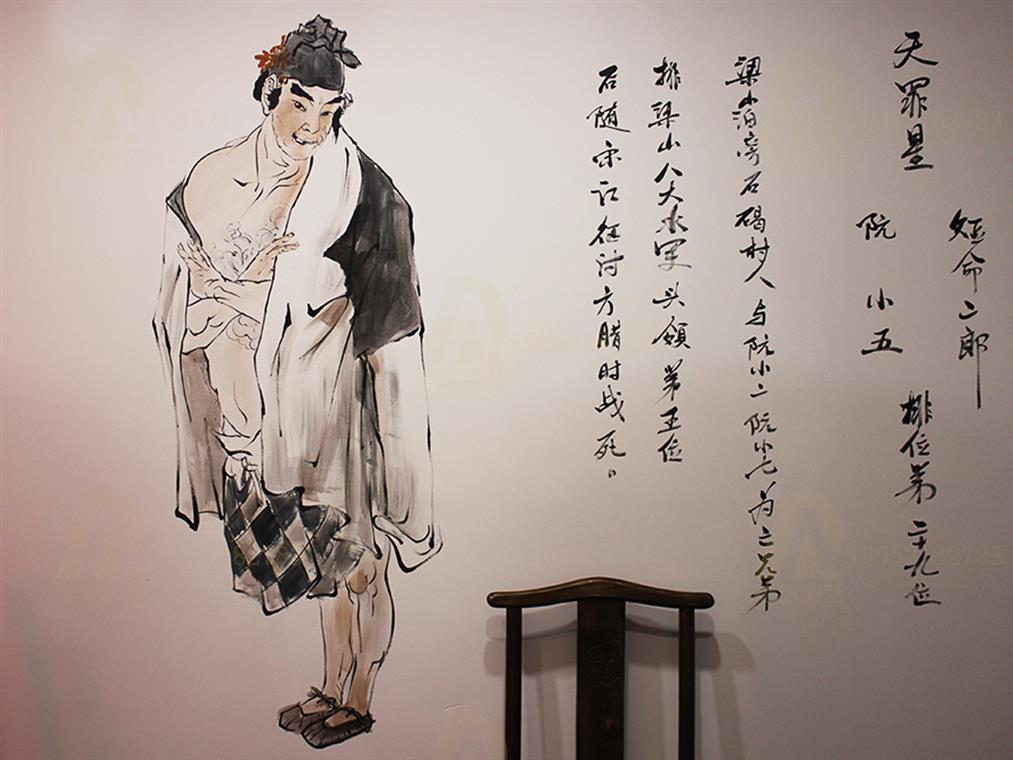 天罪星
短命二郎
阮小五
排位第二十九位
梁山泊旁石碣村人与阮小二阮小七为三兄弟
排梁山八大水军头领第五位
后随宋江征讨方腊时战死。